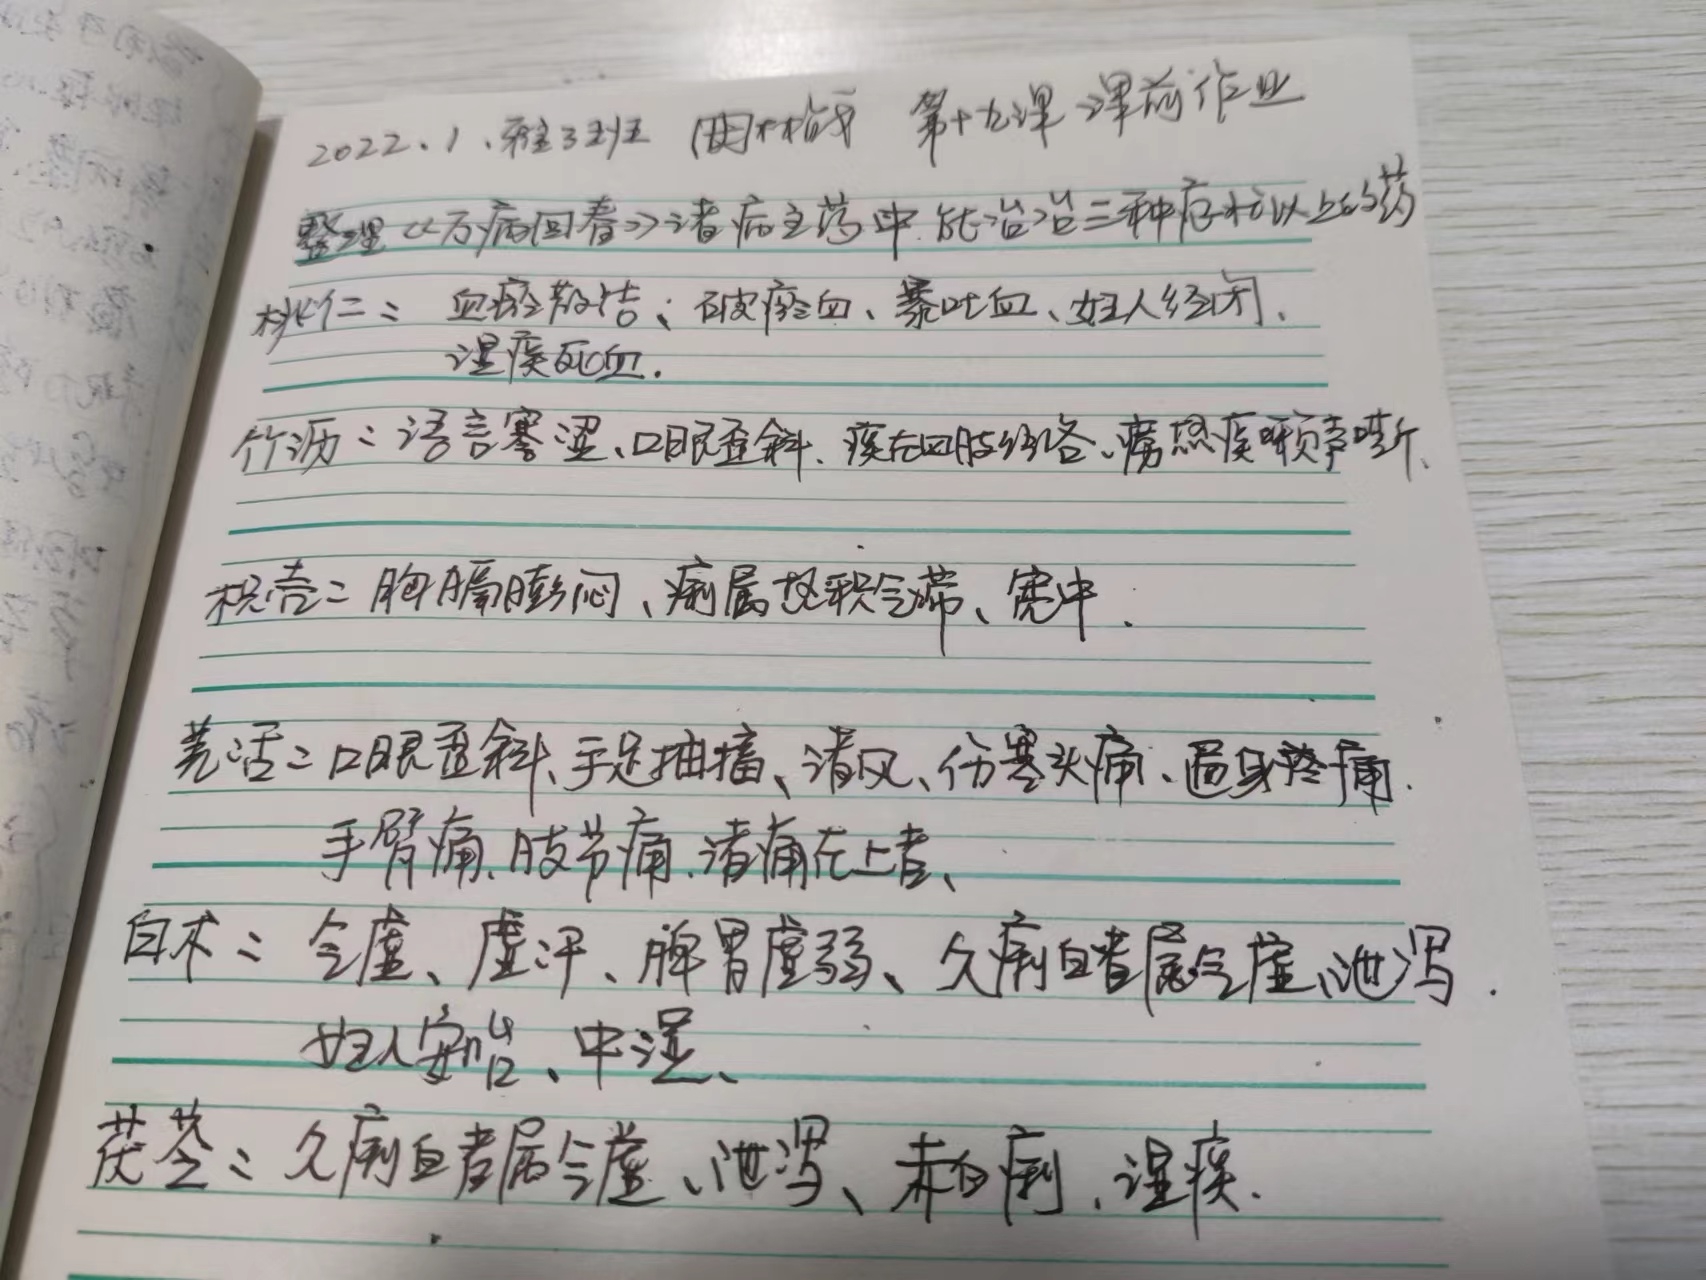 2022.1.雅3班 周林战 第十九课课前作业
整理《万病回春》诸病主药中.能治治三种病症以上的药
桃仁:血瘀散结、破瘀血、暴吐血、妇人经闭、
湿痰死血.
竹沥:语言蹇涩、口眼歪斜.痰在四肢经络、痨热痰嗽声嘶、
枳壳:胸膈膨闷、痢属热积气滞、宽中.
羌活:口眼歪斜、手足抽搐、诸风、伤寒头痛、遍身疼痛.
手臂痛.肢节痛.诸痛在上者、
白术:气虚、虚汗、脾胃虚弱、久痢白者属气虚、泄泻.
妇人安胎、中湿、
茯苓:久痢白者属气虚、泄泻、赤白痢、湿痰.